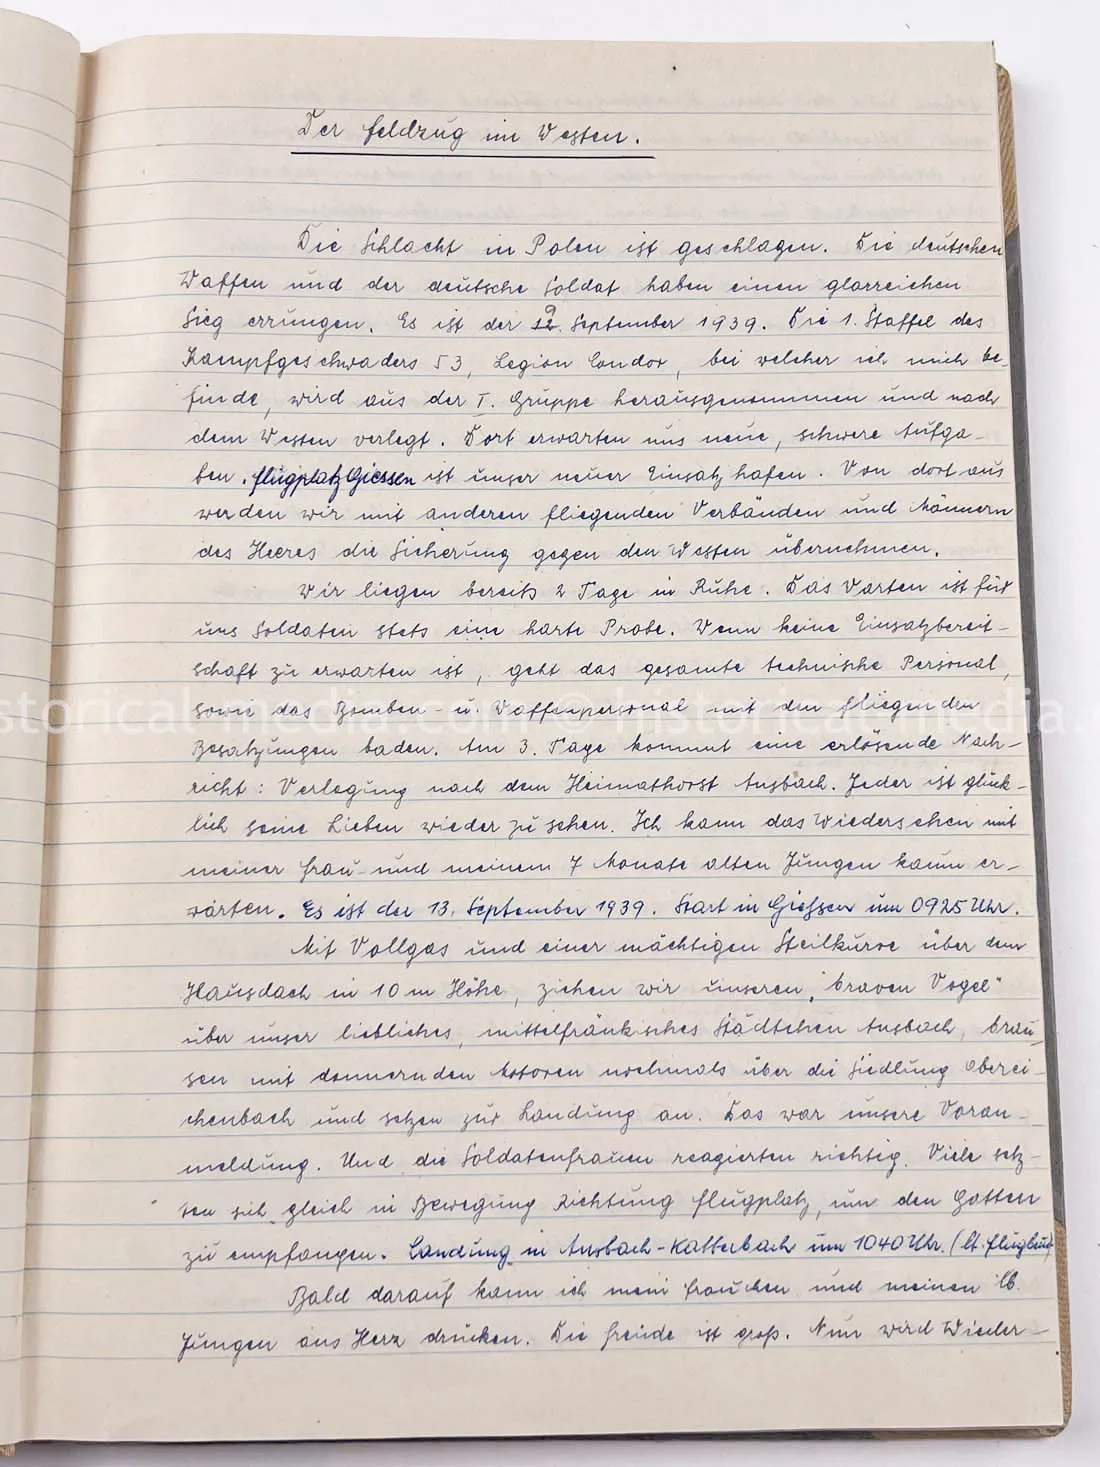 Der Feldzug im Westen.
Die Schlacht in Polen ist geschlagen. Die deutschen
Waffen und der deutsche Soldat haben einen glorreichen
Sieg errungen. Es ist der September 1939. Die 1. Staffel des
Kampfgeschwaders 53, Legion Condor, bei welcher ich mich be-
finde, wird aus der I. Gruppe herausgenommen und nach
dem Westen verlegt. Dort erwarten uns neue, schwere Aufga-
ben. Flugplatz Giessen ist unser neuer Einsatzhafen. Von dort aus
werden wir mit anderen fliegenden Verbänden und Männern
des Heeres die Sicherung gegen den Westen übernehmen.
Wir liegen bereits 2 Tage in Ruhe. Das Warten ist für
uns Soldaten stets eine harte Probe. Wenn keine Einsatzbereit-
schaft zu erwarten ist, geht das gesamte technische Personal,
sowie das Bomben- u. Waffenpersonal mit den fliegenden
Besatzungen baden. Am 3. Tage kommt eine erlösende Nach-
richt: Verlegung nach dem Heimathorst Ansbach. Jeder ist glück-
lich seine Lieben wieder zu sehen. Ich kann das Wiedersehen mit
meiner Frau und meinem 7 Monate alten Jungen kaum er-
warten. Es ist der 13. September 1939. Start in Gießsen um 0925 Uhr.
Mit Vollgas und einer mächtigen Steilkurve über dem
Hausdach in 10 m Höhe, ziehen wir unseren "braven Vogel"
über unser liebliches, mittelfränkisches Städtchen Ansbach, brau-
sen mit donnernden Motoren nochmals über die Siedlung Oberei-
chenbach und setzen zur Landung an. Das war unsere Voran-
meldung. Und die Soldatenfrauen reagierten richtig. Viele setz-
ten sich gleich in Bewegung Richtung Flugplatz, um den Gatten
zu empfangen. Landung in Ansbach-Katterbach um 1040 Uhr. (lt. Flugbuch
Bald darauf kann ich mein Frauchen und meinen lb.
Jungen ans Herz drücken. Die Freude ist groß. Nun wird Wieder-